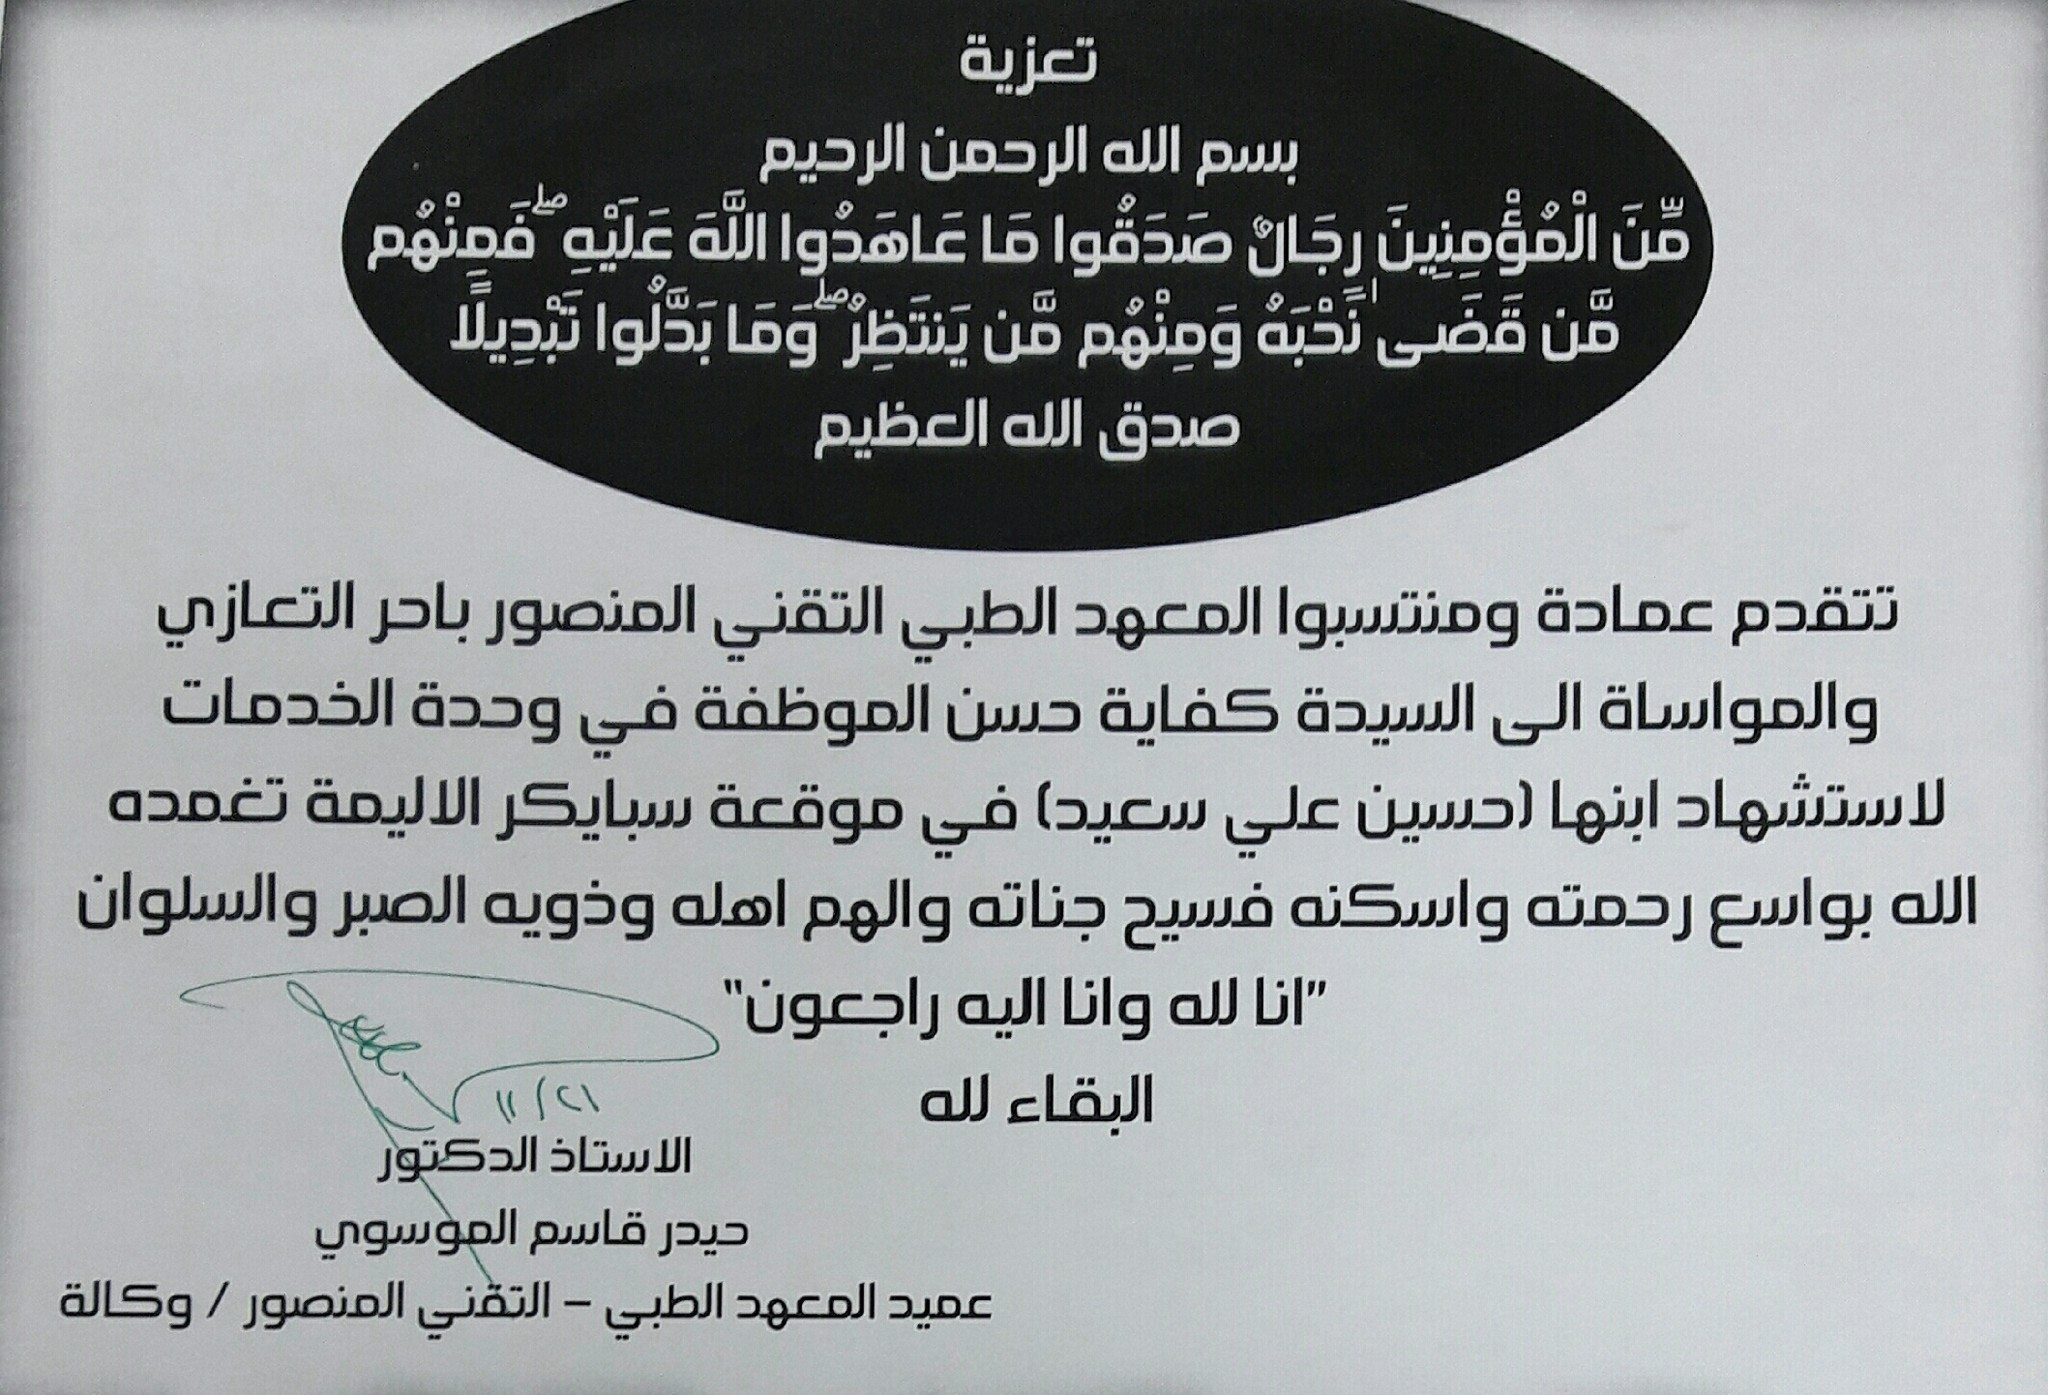 تعزية
بسم الله الرحمن الرحيم
مِّنَ الْمُؤْمِنِينَ رِجَالٌ صَدَقُوا مَا عَاهَدُوا اللَّهَ عَلَيْهِ ۖ فَمِنْهُم
مَّن قَضَىٰ نَحْبَهُ وَمِنْهُم مَّن يَنتَظِرُ ۖ وَمَا بَدَّلُوا تَبْدِيلًا
صدق الله العظيم
تتقدم عمادة ومنتسبوا المعهد الطبي التقني المنصور باحر التعازي
والمواساة الى السيدة كفاية حسن الموظفة في وحدة الخدمات
لاستشهاد ابنها (حسين علي سعيد) في موقعة سبايكر الاليمة تغمده
الله بواسع رحمته واسكنه فسيح جناته والهم اهله وذويه الصبر والسلوان
"انا لله وانا اليه راجعون"
البقاء لله
١١/٢١
الاستاذ الدكتور
حيدر قاسم الموسوي
عميد المعهد الطبي – التقني المنصور / وكالة